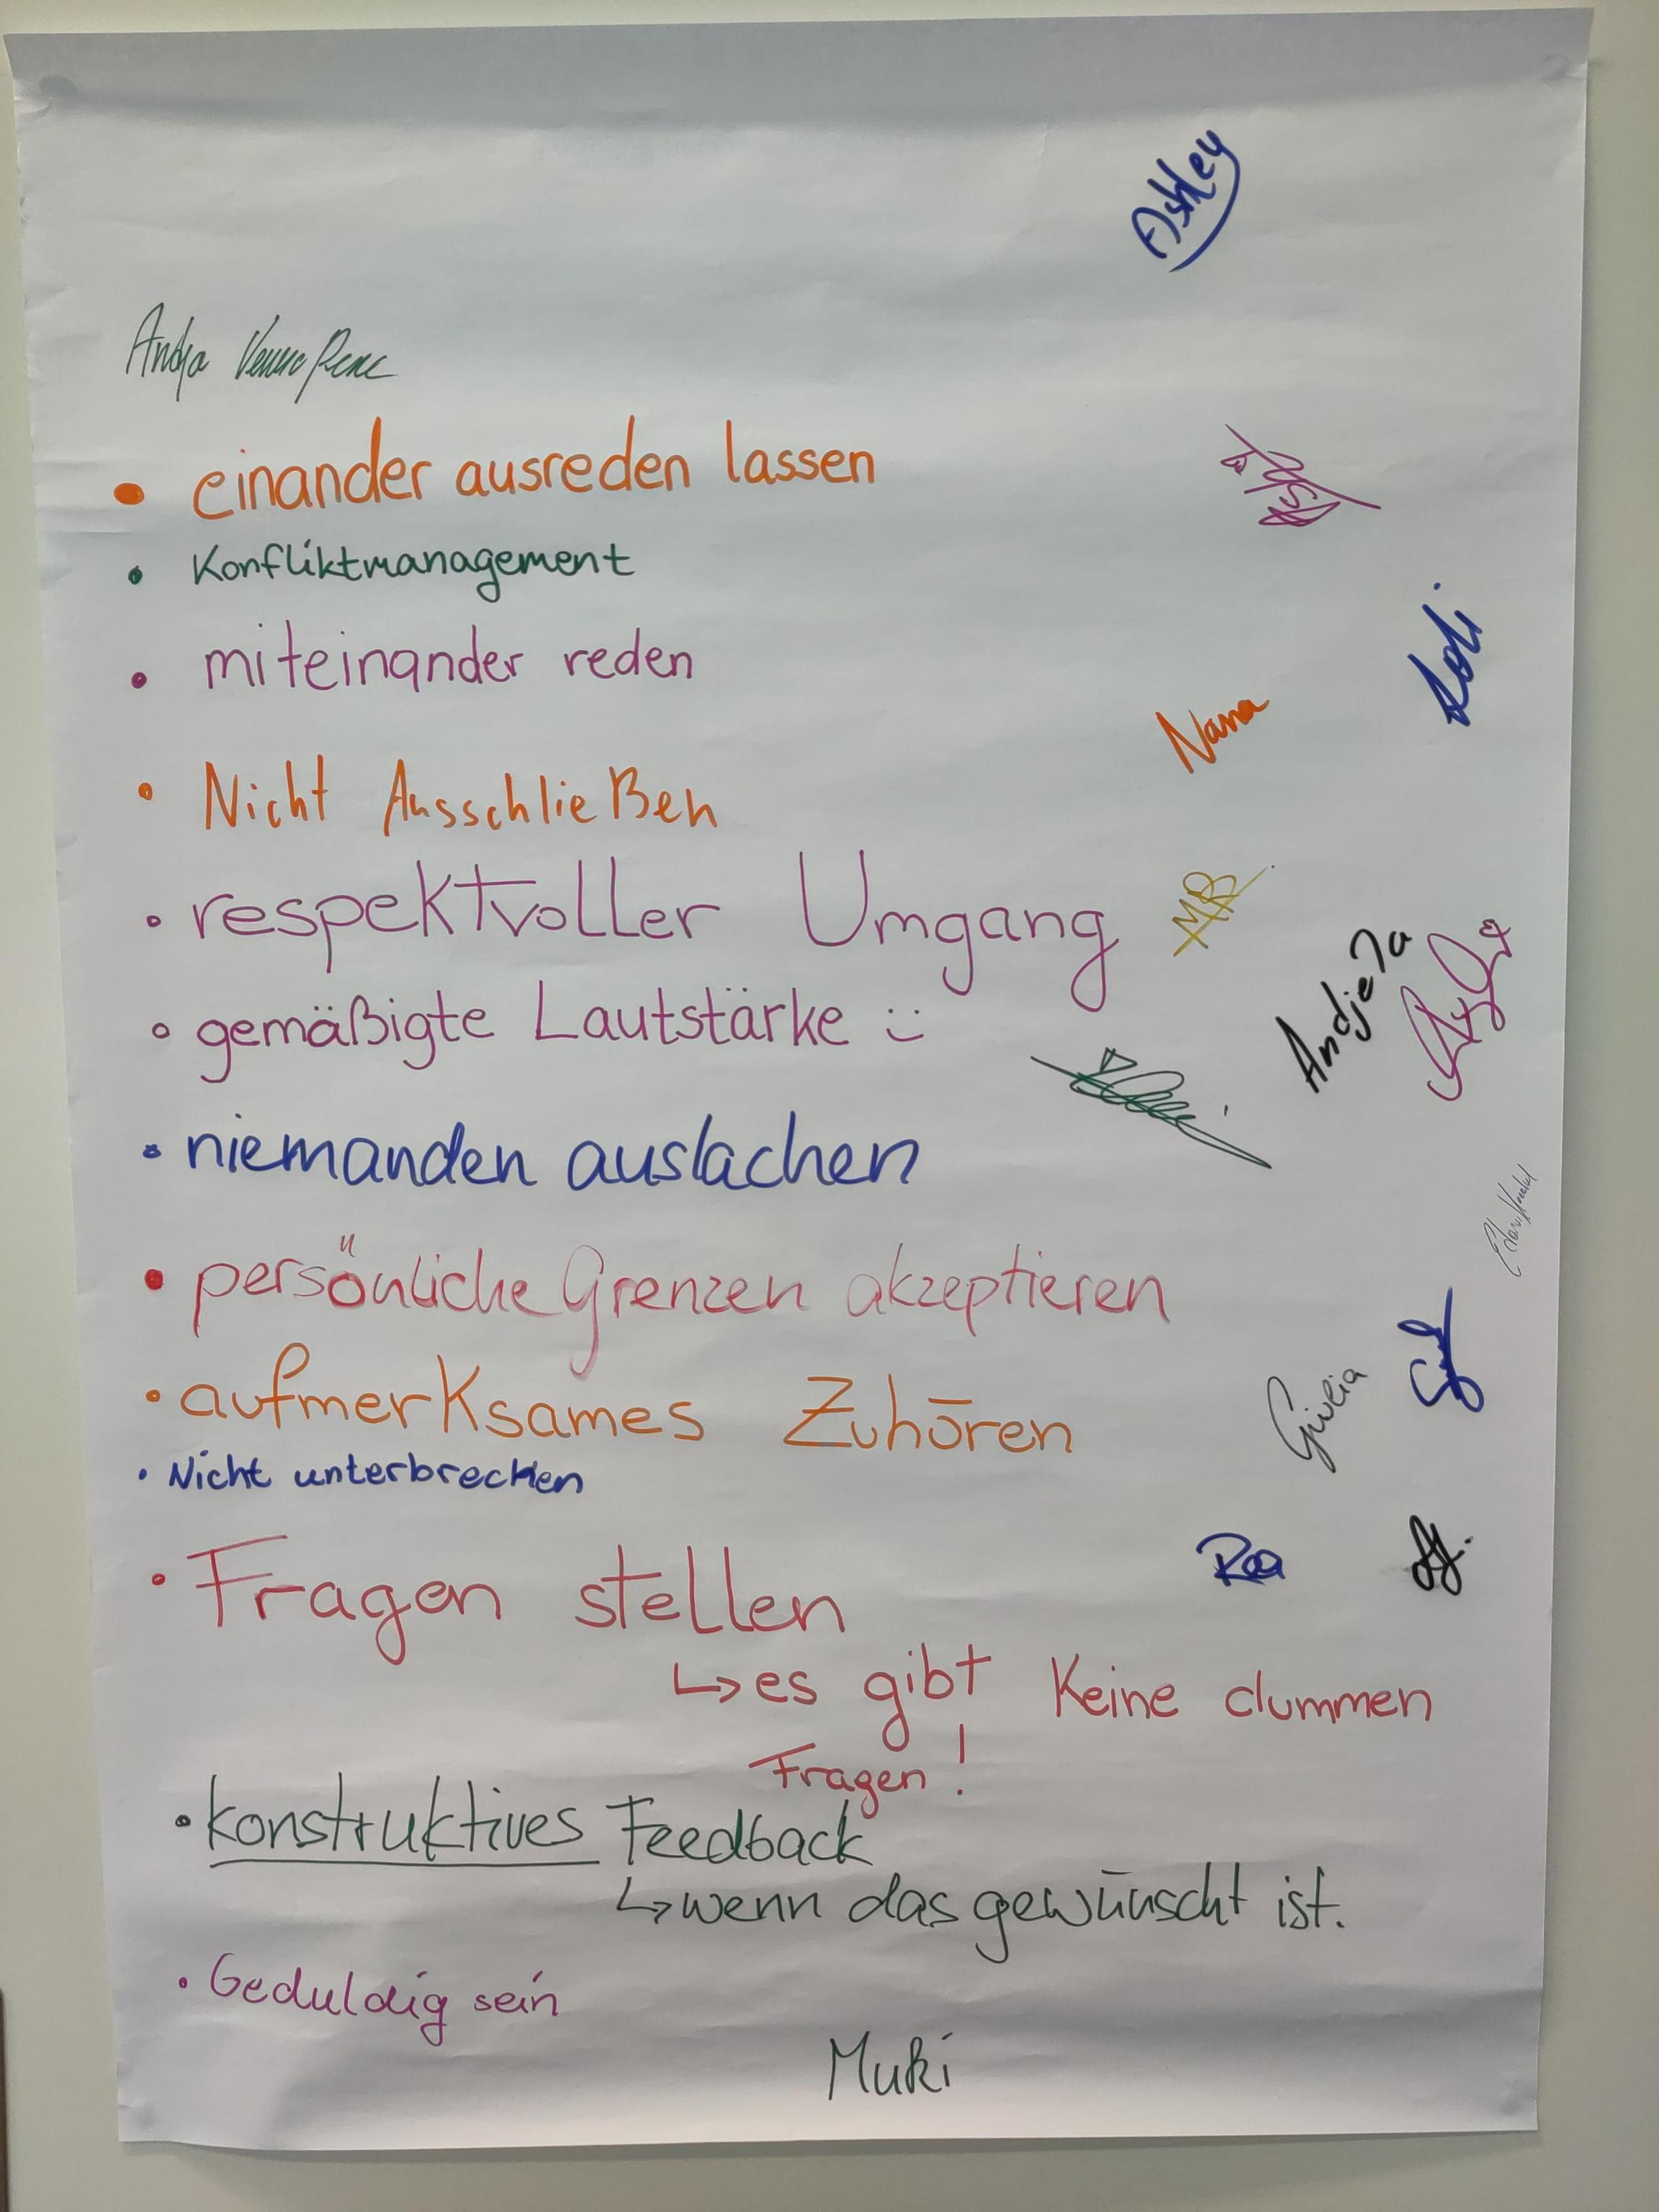 Ashley
Andja
• einander ausreden lassen
• Konfliktmanagement
• miteinander reden
Nana
• Nicht Ausschließen
• respektvoller Umgang
MR
Andjela
• gemäßigte Lautstärke :)
• niemanden auslachen
• persönliche Grenzen akzeptieren
• aufmerksames Zuhören
Giulia
• Nicht unterbrechen
• Fragen stellen
Rea
↳ es gibt Keine dummen
Fragen!
• konstruktives Feedback
↳ wenn das gewünscht ist.
• Geduldig sein
Muki